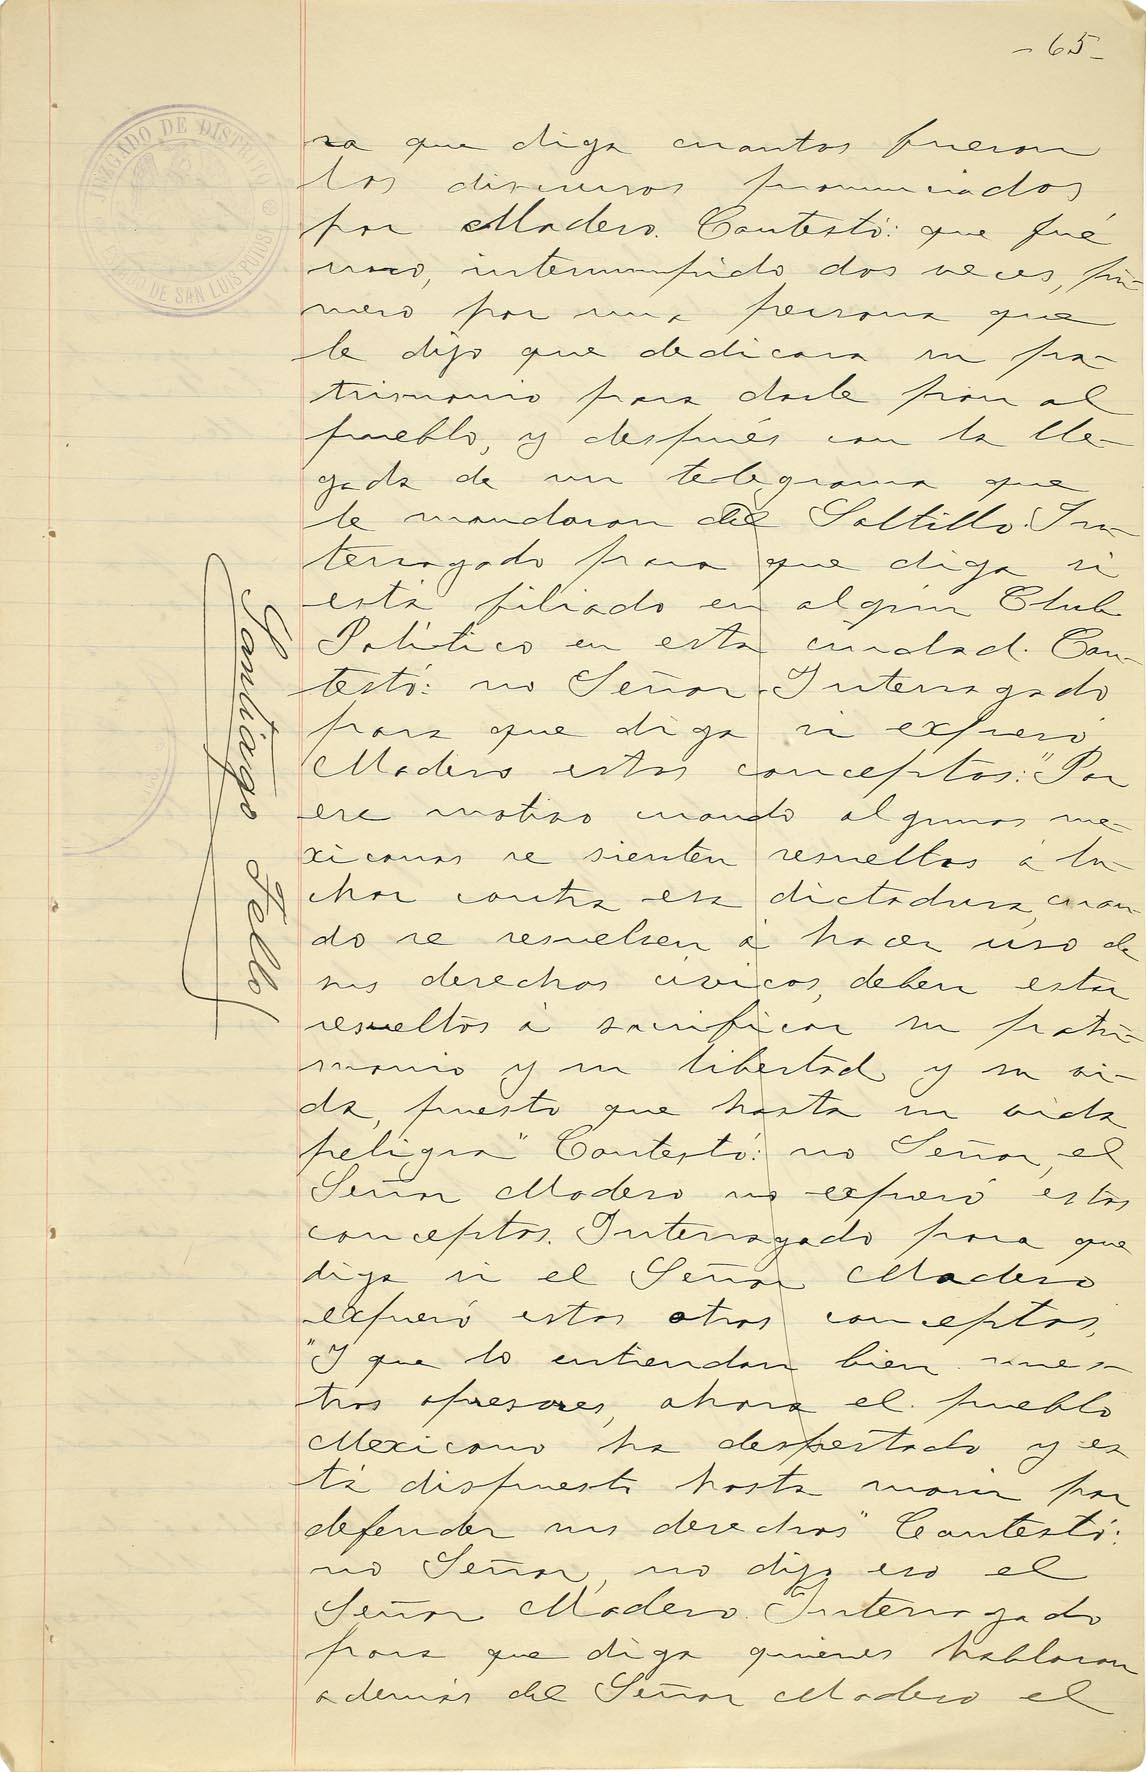 - 65 -
JUZGADO DE DISTRITO
DE SAN LUIS POTOSI
ra que diga cuantos fueron
los discursos pronunciados
por Madero. Contestó: que fué
uno, interrumpido dos veces, pri-
mero por una persona que
le dijo que dedicara su pa-
trimonio para darle pan al
pueblo, y después con la lle-
gada de un telegrama que
le mandaron del Saltillo. In-
terrogado para que diga si
está filiado en algún Club
Político en esta ciudad. Con-
testó: no Señor. Interrogado
para que diga si expresó
Madero estos conceptos: "Por
ese motivo cuando algunos me-
xicanos se sienten resueltos á lu-
char contra esa dictadura, cuan-
do se resuelven á hacer uso de
sus derechos cívicos, deben estar
resueltos á sacrificar su patri-
monio y su libertad y su vi-
da, puesto que hasta su vida
peligra" Contestó: no Señor, el
Señor Madero no expresó estos
conceptos. Interrogado para que
diga si el Señor Madero
expresó estos otros conceptos,
"Y que lo entiendan bien nues-
tros opresores, ahora el pueblo
Mexicano ha despertado y es
tá dispuesto hasta morir por
defender sus derechos" Contestó:
no Señor, no dijo eso el
Señor Madero. Interrogado
para que diga quienes hablaron
además del Señor Madero el
Santiago Tello